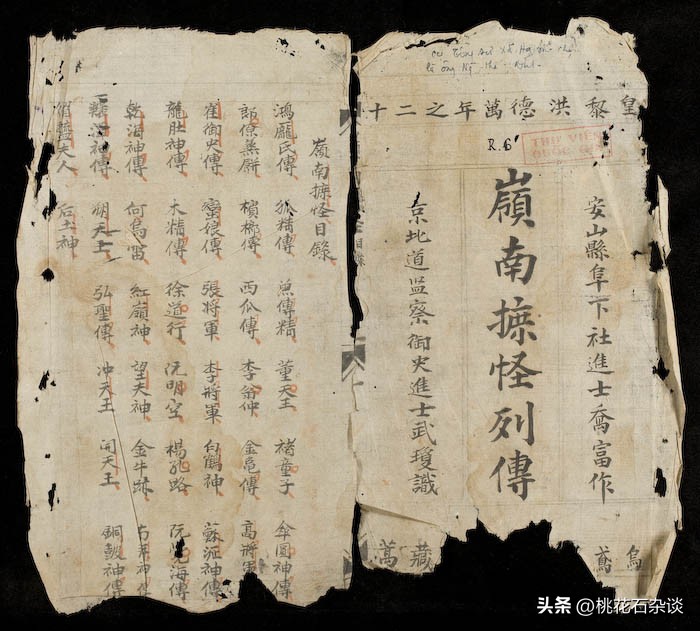 皇黎洪德萬年之二十
R.6
THƯ VIỆN
安山縣阜下社進士喬富作
嶺南摭怪列傳
京北道监察御史進士武瓊識
烏鳶
藏萬
嶺南摭怪目錄
鴻龐氏傳 狐精傳 魚傳精 董天王 褚童子 傘圓神傳
郎僚蒸餅 檳榔傳 西瓜傳 李翁仲 金亀傳 高將軍
崔御史傳 蠻娘傳 張將軍 李將軍 白鶴神 蘇瀝神傳
龍肚神傳 木精傳 徐道行 阮明空 楊孔路 阮覺海傳
乾海神傳 何烏雷 紅嶺神 望夫神 金牛跡
神傳 朔天王 弘聖傳 冲天王 開天王 銅皷神傳
夫人 后土神
头条 @桃花石杂谈